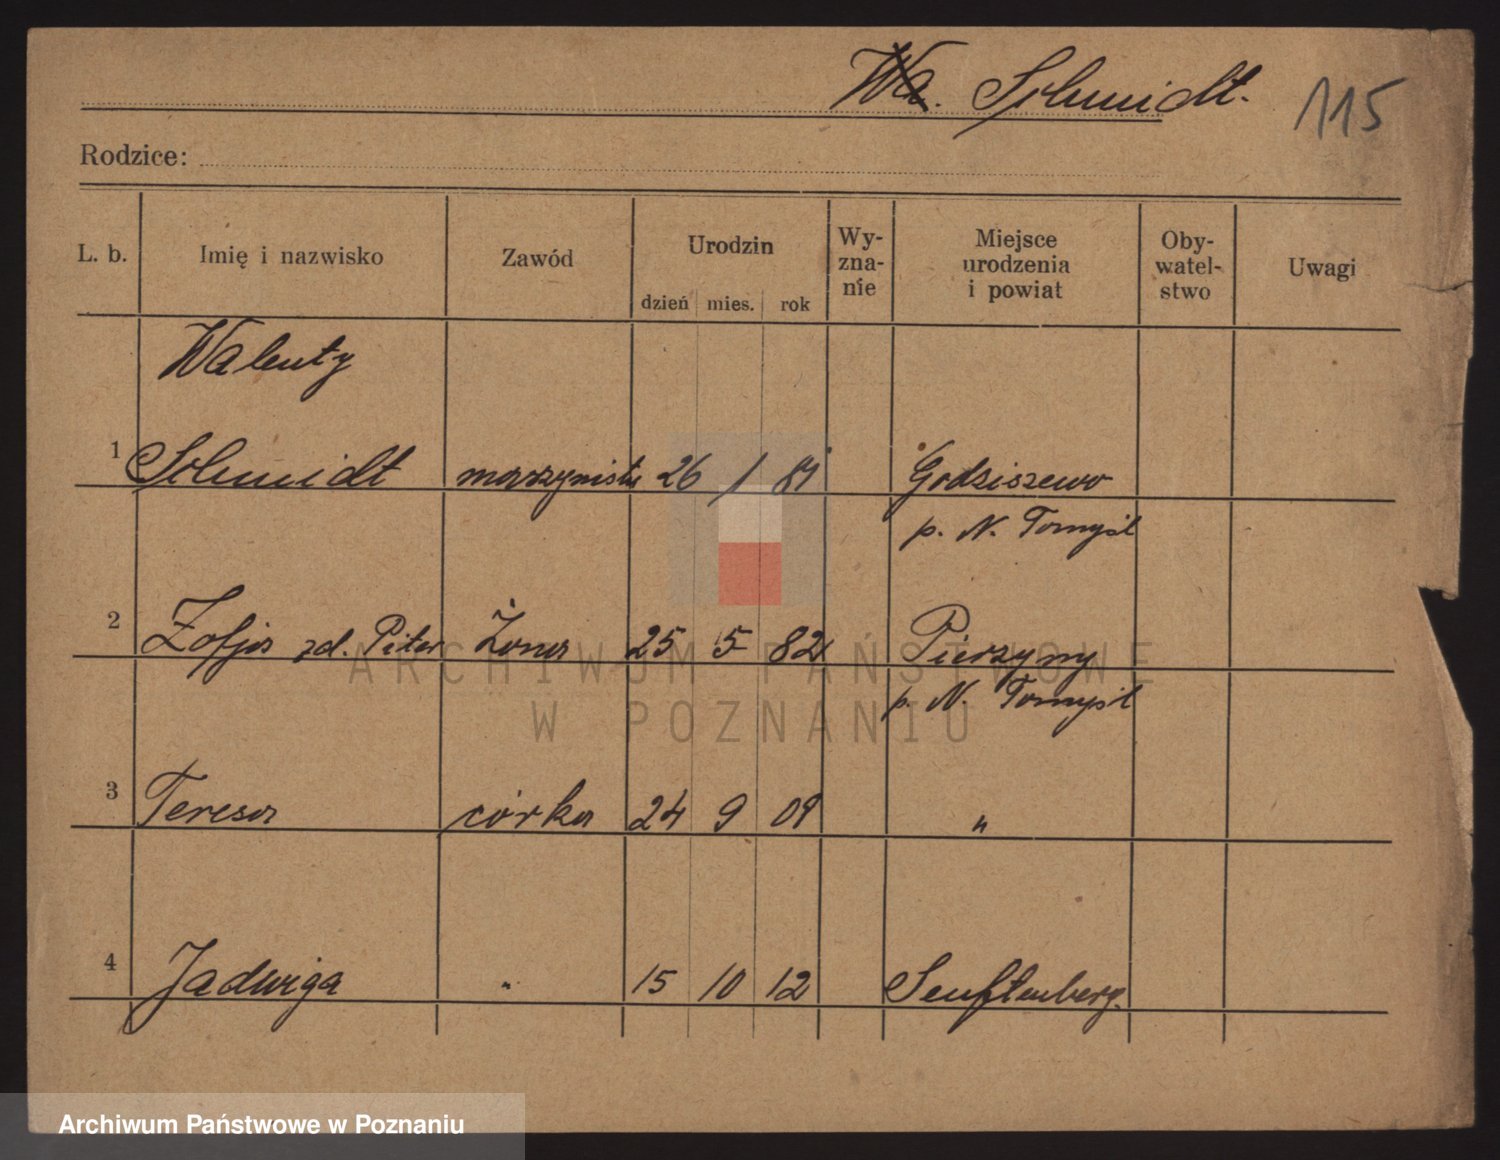 Wa. Schmidt. 115
Rodzice:
L. b. Imię i nazwisko Zawód Urodzin dzień mies. rok Wy-zna-nie Miejsce urodzenia i powiat Oby-watel-stwo Uwagi
Walenty
1 Schmidt maszynista 26 1 81 Godziszewo
p. N. Tomyśl
2 Zofja zd. Piter Żona 25 5 82 Pierzyny
p. N. Tomyśl
ARCHIWUM PAŃSTWOWE
W POZNANIU
3 Teresa córka 24 9 08 "
4 Jadwiga " 15 10 12 Senftenberg.
Archiwum Państwowe w Poznaniu